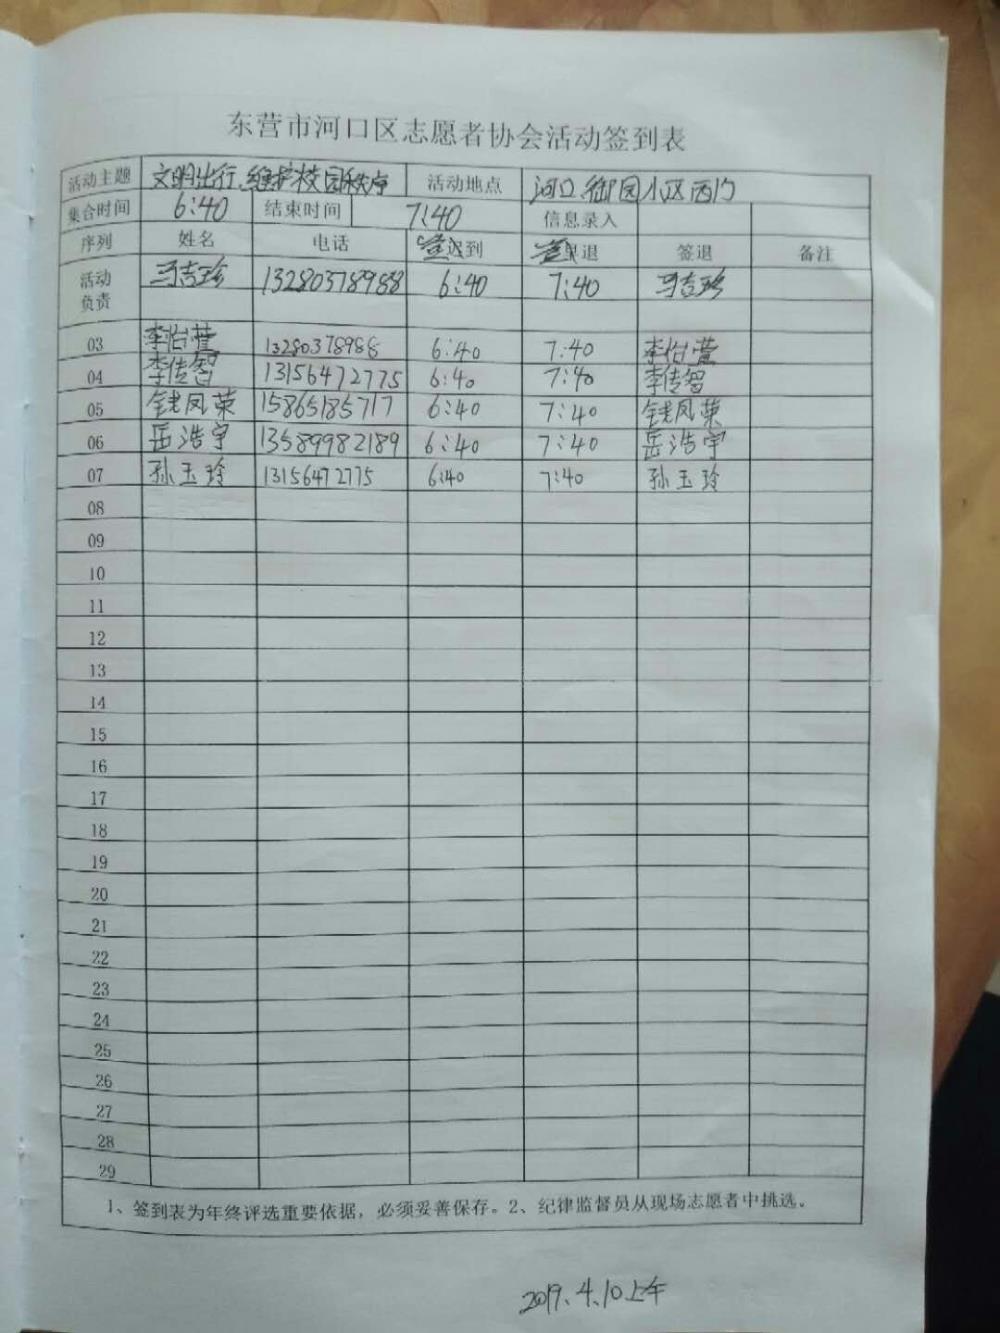 东营市河口区志愿者协会活动签到表
活动主题 文明出行、维护校园秩序 活动地点 河口、御园小区西门
集合时间 6:40 结束时间 7:40 信息录入
序列 姓名 电话 签到 签退 备注
活动负责 马吉珍 13280378988 6:40 7:40 马吉珍
03 李怡萱 13280378988 6:40 7:40 李怡萱
04 李传智 13156472775 6:40 7:40 李传智
05 钱凤荣 15865185717 6:40 7:40 钱凤荣
06 岳浩宇 13589982189 6:40 7:40 岳浩宇
07 孙玉玲 13156472775 6:40 7:40 孙玉玲
08
09
10
11
12
13
14
15
16
17
18
19
20
21
22
23
24
25
26
27
28
29
1、签到表为年终评选重要依据，必须妥善保存。2、纪律监督员从现场志愿者中挑选。
2019.4.10上午